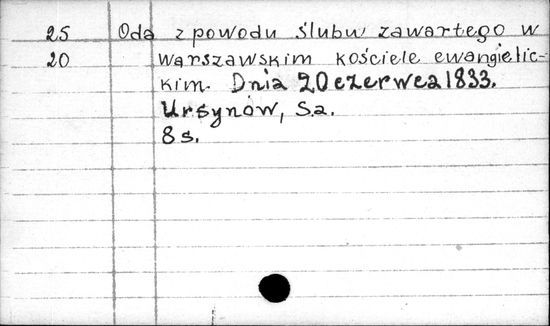 25 Oda z powodu ślubu zawartego w
20 warszawskim kościele ewangielic-
kim. Dnia 20 czerwca 1833.
Ursynów, S.a.
8 s.